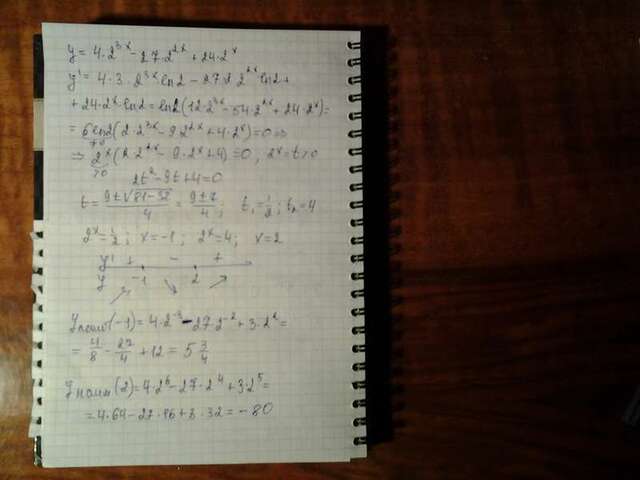 y = 4·2^3x − 27·2^2x + 24·2^x
y' = 4·3·2^3x ln2 − 27·2·2^2x ln2 +
+ 24·2^x·ln2 = ln2(12·2^3x − 54·2^2x + 24·2^x) =
= 6ln2(2·2^3x − 9·2^2x + 4·2^x) = 0 ⇒
>0
⇒ 2^x(2·2^2x − 9·2^x + 4) = 0, 2^x = t > 0
>0
2t² − 9t + 4 = 0
t = (9 ± √(81−32))/4 = (9 ± 7)/4; t₁ = 1/2; t₂ = 4
2^x = 1/2; x = −1; 2^x = 4; x = 2
y' + − +
y −1 ↘ 2 ↗
↗
y наиб(−1) = 4·2^−3 − 27·2^−2 + 3·2^2 =
= 4/8 − 27/4 + 12 = 5 3/4
y наим(2) = 4·2^6 − 27·2^4 + 3·2^5 =
= 4·64 − 27·16 + 3·32 = −80